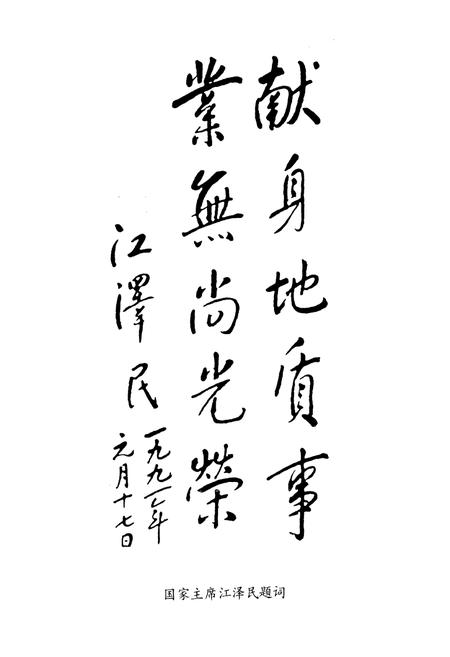 献身地质事
業無尚光榮
江澤民
一九九一年
元月十七日
国家主席江泽民题词